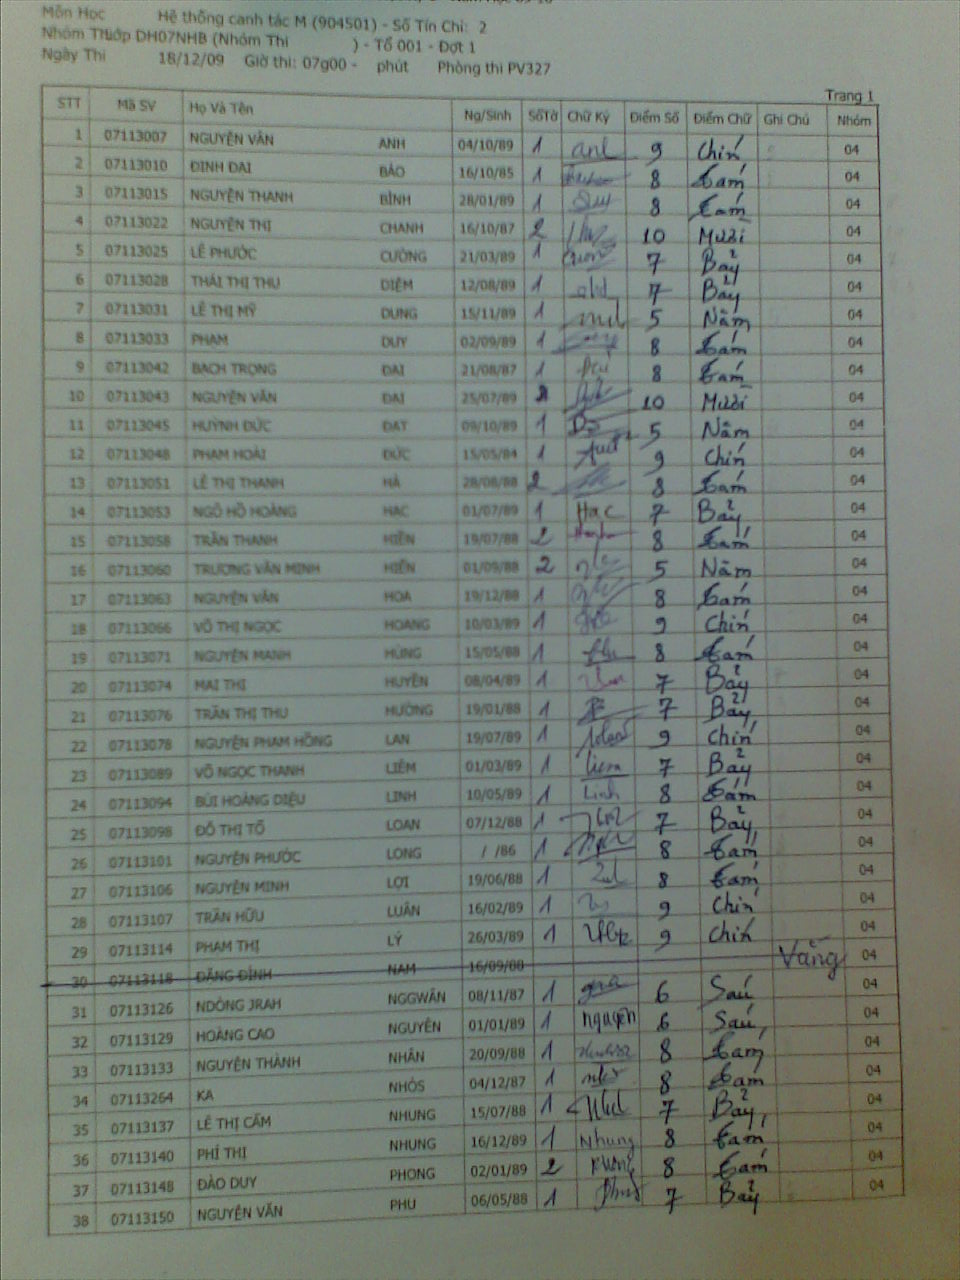 Môn Học Hệ thống canh tác M (904501) - Số Tín Chỉ: 2
Nhóm Thi Lớp DH07NHB (Nhóm Thi ) - Tổ 001 - Đợt 1
Ngày Thi 18/12/09 Giờ thi: 07g00 - phút Phòng thi PV327
Trang 1
STT Mã SV Họ Và Tên Ng/Sinh SốTờ Chữ Ký Điểm Số Điểm Chữ Ghi Chú Nhóm
1 07113007 NGUYỄN VĂN ANH 04/10/89 1 9 Chín 04
2 07113010 ĐINH ĐẠI BẢO 16/10/85 1 8 Tám 04
3 07113015 NGUYỄN THANH BÌNH 28/01/89 1 8 Tám 04
4 07113022 NGUYỄN THỊ CHANH 16/10/87 2 10 Mười 04
5 07113025 LÊ PHƯỚC CƯỜNG 21/03/89 1 7 Bảy 04
6 07113028 THÁI THỊ THU DIỄM 12/08/89 1 7 Bảy 04
7 07113031 LÊ THỊ MỸ DUNG 15/11/89 1 5 Năm 04
8 07113033 PHẠM DUY 02/09/89 1 8 Tám 04
9 07113042 BẠCH TRỌNG ĐẠI 21/08/87 1 8 Tám 04
10 07113043 NGUYỄN VĂN ĐẠI 25/07/89 2 10 Mười 04
11 07113045 HUỲNH ĐỨC ĐẠT 09/10/89 1 5 Năm 04
12 07113048 PHẠM HOÀI ĐỨC 15/05/84 1 9 Chín 04
13 07113051 LÊ THỊ THANH HÀ 28/08/88 2 8 Tám 04
14 07113053 NGÔ HỒ HOÀNG HẠC 01/07/89 1 Hạc 7 Bảy 04
15 07113058 TRẦN THANH HIỀN 19/07/88 2 8 Tám 04
16 07113060 TRƯƠNG VĂN MINH HIỀN 01/09/88 2 5 Năm 04
17 07113063 NGUYỄN VĂN HOA 19/12/88 1 8 Tám 04
18 07113066 VÕ THỊ NGỌC HOANG 10/03/89 1 9 Chín 04
19 07113071 NGUYỄN MẠNH HÙNG 15/05/88 1 8 Tám 04
20 07113074 MAI THỊ HUYỀN 08/04/89 1 7 Bảy 04
21 07113076 TRẦN THỊ THU HƯỜNG 19/01/88 1 7 Bảy 04
22 07113078 NGUYỄN PHẠM HỒNG LAN 19/07/89 1 9 Chín 04
23 07113089 VÕ NGỌC THANH LIÊM 01/03/89 1 liêm 7 Bảy 04
24 07113094 BÙI HOÀNG DIỆU LINH 10/05/89 1 Linh 8 Tám 04
25 07113098 ĐỖ THỊ TỐ LOAN 07/12/88 1 7 Bảy 04
26 07113101 NGUYỄN PHƯỚC LONG / /86 1 8 Tám 04
27 07113106 NGUYỄN MINH LỢI 19/06/88 1 8 Tám 04
28 07113107 TRẦN HỮU LUÂN 16/02/89 1 9 Chín 04
29 07113114 PHẠM THỊ LÝ 26/03/89 1 9 Chín 04
30 07113118 ĐẶNG ĐÌNH NAM 16/09/88 Vắng 04
31 07113126 NDÒNG JRAH NGGWĂN 08/11/87 1 6 Sáu 04
32 07113129 HOÀNG CAO NGUYÊN 01/01/89 1 nguyên 6 Sáu 04
33 07113133 NGUYỄN THÀNH NHÂN 20/09/88 1 8 Tám 04
34 07113264 KA NHÓS 04/12/87 1 8 Tám 04
35 07113137 LÊ THỊ CẨM NHUNG 15/07/88 1 7 Bảy 04
36 07113140 PHÍ THỊ NHUNG 16/12/89 1 Nhung 8 Tám 04
37 07113148 ĐÀO DUY PHONG 02/01/89 2 8 Tám 04
38 07113150 NGUYỄN VĂN PHU 06/05/88 1 7 Bảy 04